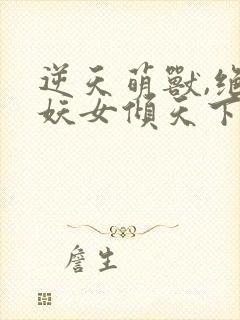 逆天萌獸,绝
妖女傾天下
詹生